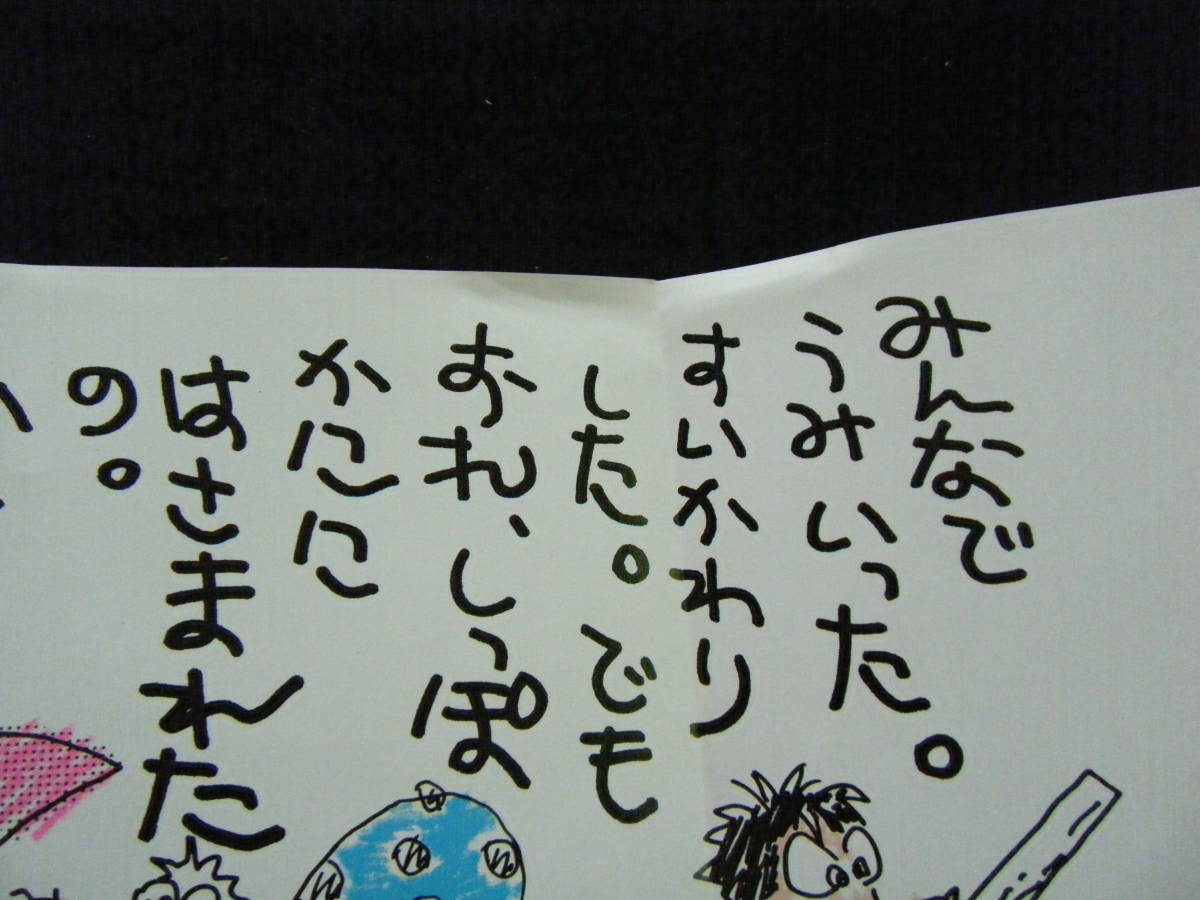 みんなで
うみいった。
すいかわり
した。でも
おれ、しっぽ
かにに
はさまれた
の。